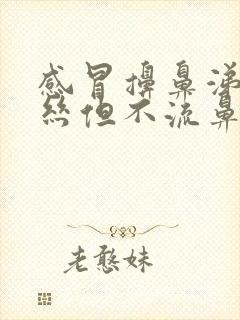 感冒擤鼻涕
丝但不流鼻
老憨妹